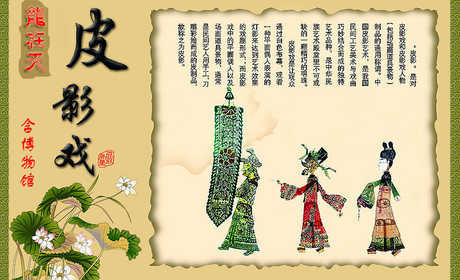 皮影戏
博物馆
皮影，是对
皮影戏和皮影戏人物
（包括场面道具景物）
制品的通用称谓。中
国皮影艺术，是我国
民间工艺美术与戏曲
巧妙结合而成的独特
艺术品种，是中华民
族艺术殿堂里不可或
缺的一颗精巧的明珠。
皮影戏是让观众
通过白色布幕，观看
一种平面偶人表演的
灯影来达到艺术效果
的戏剧形式；而皮影
戏中的平面偶人以及
场面道具景物，通常
是民间艺人用手工，刀
雕彩绘而成的皮制品，
故称之为皮影。